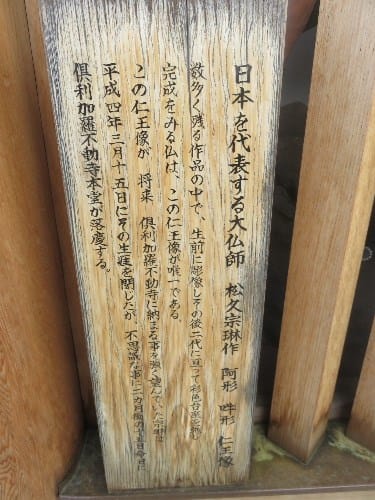 日本を代表する大仏師　松久宗琳作　阿形　吽形　仁王像
数多く残る作品の中で、生前に彫像しその後二代に亘って彩色
完成をみる仏は、この仁王像が唯一である。
この仁王像が　将来　倶利加羅不動寺に納まる事を強く望んでいた
平成四年三月十五日にその生涯を閉じたが、不思議な事に二カ月後の十五日
倶利加羅不動寺本堂が落慶する。